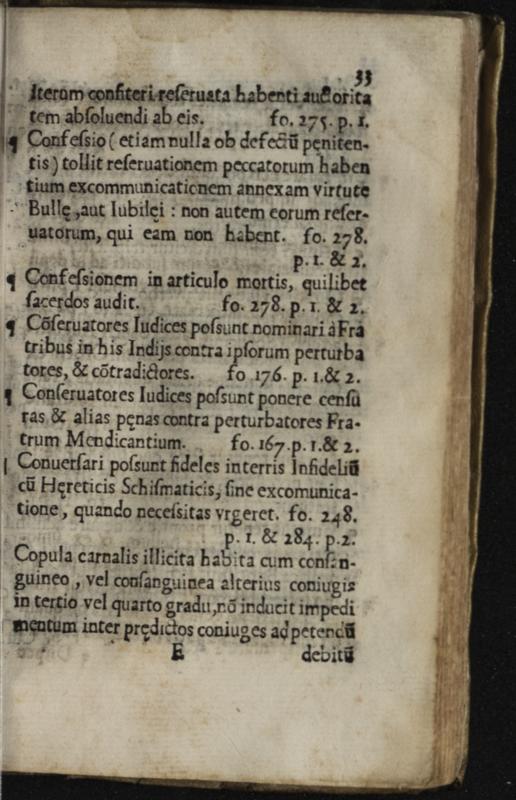 33
Iterum confiteri reſeruata habenti auctorita
tem abſoluendi ab eis. fo. 275. p. 1.
¶ Confeſsio ( etiam nulla ob defectū pęniten-
tis ) tollit reſeruationem peccatorum haben
tium excommunicationem annexam virtute
Bullę, aut Iubilęi : non autem eorum reſer-
uatorum, qui eam non habent. fo. 278.
p. 1. & 2.
¶ Confeſsionem in articulo mortis, quilibet
ſacerdos audit. fo. 278. p. 1. & 2.
¶ Cōſeruatores Iudices poſsunt nominari à Fra
tribus in his Indijs contra ipſorum perturba
tores, & cōtradictores. fo 176. p. 1. & 2.
¶ Conſeruatores Iudices poſsunt ponere cenſu
ras & alias pęnas contra perturbatores Fra-
trum Mendicantium. fo. 167. p. 1. & 2.
¶ Conuerſari poſsunt fideles in terris Infideliū
cū Hęreticis Schiſmaticis, ſine excomunica-
tione, quando neceſsitas vrgeret. fo. 248.
p. 1. & 284. p. 2.
Copula carnalis illicita habita cum conſan-
guineo, vel conſanguinea alterius coniugis
in tertio vel quarto gradu, nō inducit impedi
mentum inter prędictos coniuges ad petendū
E debitū